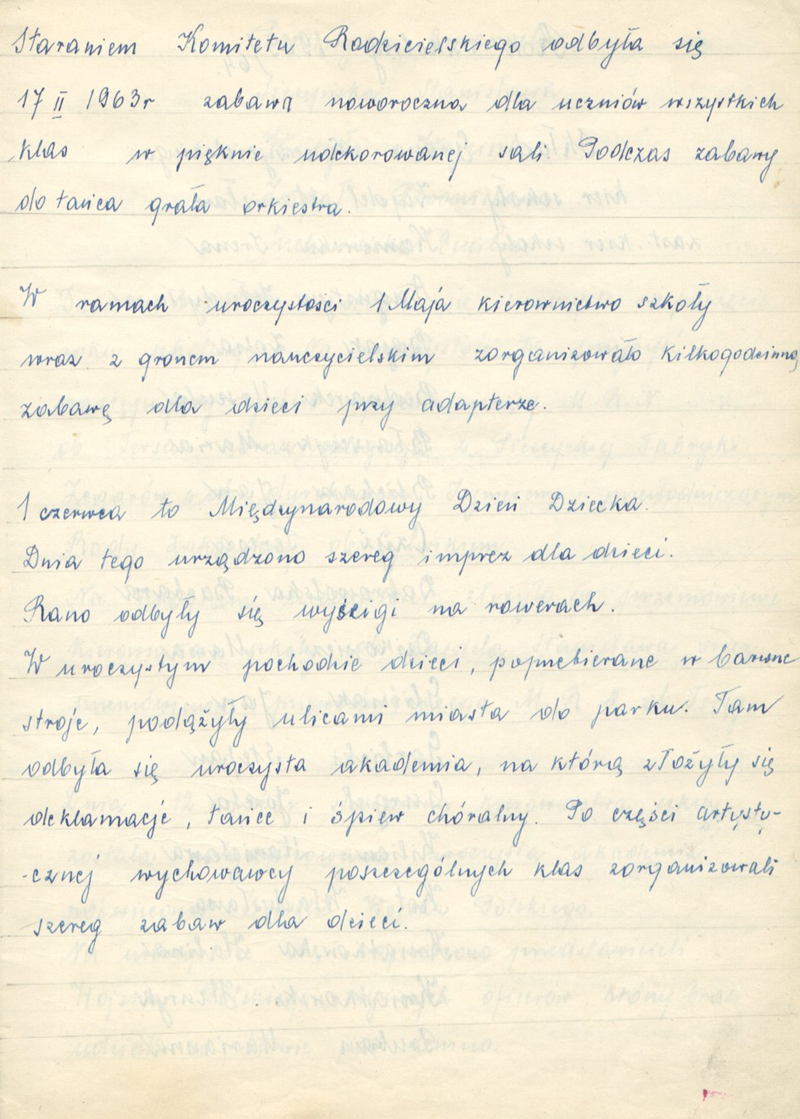 Staraniem Komitetu Rodzicielskiego odbyła się
17 II 1963r zabawa noworoczna dla uczniów wszystkich
klas w pięknie udekorowanej sali Podczas zabawy
do tańca grała orkiestra.
W ramach uroczystości 1 Maja kierownictwo szkoły
wraz z gronem nauczycielskim zorganizowało kilkogodzinną
zabawę dla dzieci przy adapterze.
1 czerwca to Międzynarodowy Dzień Dziecka.
Dnia tego urządzono szereg imprez dla dzieci.
Rano odbyły się wyścigi na rowerach.
W uroczystym pochodzie dzieci, poprzebierane w barwne
stroje, podążyły ulicami miasta do parku. Tam
odbyła się uroczysta akademia, na którą złożyły się
deklamacje, tańce i śpiew chóralny. Po części artysty-
-cznej wychowawcy poszczególnych klas zorganizowali
szereg zabaw dla dzieci.